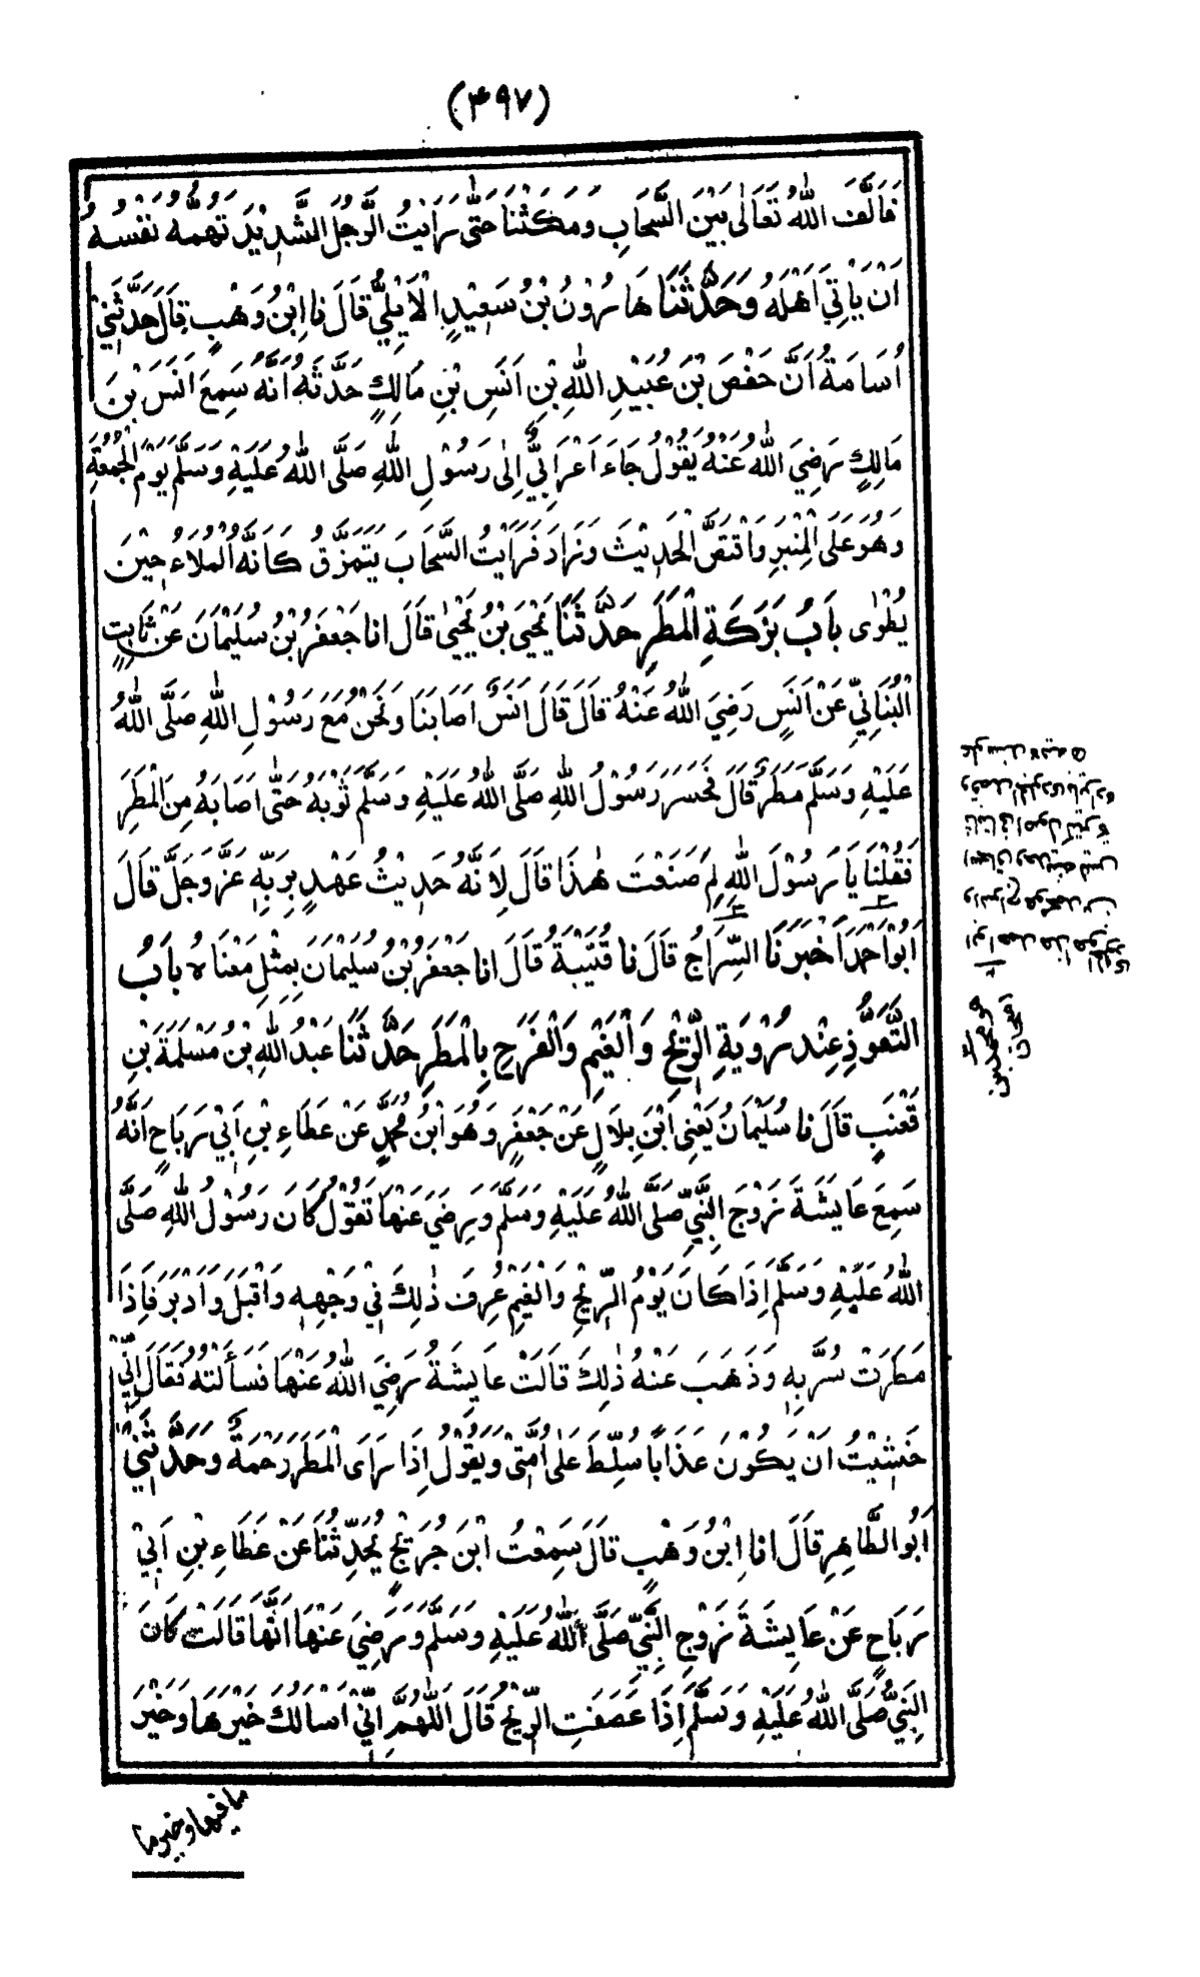 (٤٩٧)
فَاَلَّفَ اللّٰهُ تَعَالٰى بَيْنَ السَّحَابِ وَمَكَثْنَا حَتّٰى رَاَيْتُ الرَّجُلَ الشَّدِيْدَ تَهُمُّهُ نَفْسُهُ
اَنْ يَاْتِيَ اَهْلَهُ وَحَدَّثَنَا هَارُوْنُ بْنُ سَعِيْدٍ الْاَيْلِيُّ قَالَ نَا ابْنُ وَهْبٍ قَالَ حَدَّثَنِيْ
اُسَامَةُ اَنَّ حَفْصَ بْنَ عُبَيْدِ اللّٰهِ بْنِ اَنَسِ بْنِ مَالِكٍ حَدَّثَهُ اَنَّهُ سَمِعَ اَنَسَ بْنَ
مَالِكٍ رَضِيَ اللّٰهُ عَنْهُ يَقُوْلُ جَاءَ اَعْرَابِيٌّ اِلٰى رَسُوْلِ اللّٰهِ صَلَّى اللّٰهُ عَلَيْهِ وَسَلَّمَ يَوْمَ الْجُمُعَةِ
وَهُوَ عَلَى الْمِنْبَرِ وَاقْتَصَّ الْحَدِيْثَ وَزَادَ فَرَاَيْتُ السَّحَابَ يَتَمَزَّقُ كَاَنَّهُ الْمُلَاءُ حِيْنَ
يُطْوٰى بَابُ بَرَكَةِ الْمَطَرِ حَدَّثَنَا يَحْيَى بْنُ يَحْيٰى قَالَ انا جَعْفَرُ بْنُ سُلَيْمَانَ عَنْ ثَابِتٍ
الْبُنَانِيِّ عَنْ اَنَسٍ رَضِيَ اللّٰهُ عَنْهُ قَالَ قَالَ اَنَسٌ اَصَابَنَا وَنَحْنُ مَعَ رَسُوْلِ اللّٰهِ صَلَّى اللّٰهُ
عَلَيْهِ وَسَلَّمَ مَطَرٌ قَالَ فَحَسَرَ رَسُوْلُ اللّٰهِ صَلَّى اللّٰهُ عَلَيْهِ وَسَلَّمَ ثَوْبَهُ حَتّٰى اَصَابَهُ مِنَ الْمَطَرِ
فَقُلْنَا يَا رَسُوْلَ اللّٰهِ لِمَ صَنَعْتَ هٰذَا قَالَ لِاَنَّهُ حَدِيْثُ عَهْدٍ بِرَبِّهٖ عَزَّ وَجَلَّ قَالَ
اَبُوْ اَحْمَدَ اَخْبَرَنَا السِّرَاجُ قَالَ نَا قُتَيْبَةُ قَالَ انا جَعْفَرُ بْنُ سُلَيْمَانَ بِمِثْلِ مَعْنَاهُ بَابُ
التَّعَوُّذِ عِنْدَ رُؤْيَةِ الرِّيْحِ وَالْغَيْمِ وَالْفَرَحِ بِالْمَطَرِ حَدَّثَنَا عَبْدُ اللّٰهِ بْنُ مَسْلَمَةَ بْنِ
قَعْنَبٍ قَالَ نا سُلَيْمَانُ يَعْنِى ابْنَ بِلَالٍ عَنْ جَعْفَرٍ وَهُوَ ابْنُ مُحَمَّدٍ عَنْ عَطَاءِ بْنِ اَبِيْ رَبَاحٍ اَنَّهُ
سَمِعَ عَايِشَةَ زَوْجَ النَّبِيِّ صَلَّى اللّٰهُ عَلَيْهِ وَسَلَّمَ وَرَضِيَ عَنْهَا تَقُوْلُ كَانَ رَسُوْلُ اللّٰهِ صَلَّى
اللّٰهُ عَلَيْهِ وَسَلَّمَ اِذَا كَانَ يَوْمُ الرِّيْحِ وَالْغَيْمِ عُرِفَ ذٰلِكَ فِيْ وَجْهِهٖ وَاَقْبَلَ وَاَدْبَرَ فَاِذَا
مَطَرَتْ سُرَّ بِهٖ وَذَهَبَ عَنْهُ ذٰلِكَ قَالَتْ عَايِشَةُ رَضِيَ اللّٰهُ عَنْهَا فَسَاَلْتُهُ فَقَالَ اِنِّيْ
خَشِيْتُ اَنْ يَكُوْنَ عَذَابًا سُلِّطَ عَلٰى اُمَّتِيْ وَيَقُوْلُ اِذَا رَاَى الْمَطَرَ رَحْمَةٌ وَحَدَّثَنِيْ
اَبُو الطَّاهِرِ قَالَ انا ابْنُ وَهْبٍ قَالَ سَمِعْتُ ابْنَ جُرَيْجٍ يُحَدِّثُنَا عَنْ عَطَاءِ بْنِ اَبِيْ
رَبَاحٍ عَنْ عَايِشَةَ زَوْجِ النَّبِيِّ صَلَّى اللّٰهُ عَلَيْهِ وَسَلَّمَ وَرَضِيَ عَنْهَا اَنَّهَا قَالَتْ كَانَ
النَّبِيُّ صَلَّى اللّٰهُ عَلَيْهِ وَسَلَّمَ اِذَا عَصَفَتِ الرِّيْحُ قَالَ اللّٰهُمَّ اِنِّيْ اَسْاَلُكَ خَيْرَهَا وَخَيْرَ
مافيها وخير ما
هو محمد بن
اسحاق
ابو احمد هذا هو
والسراج هو محمد بن